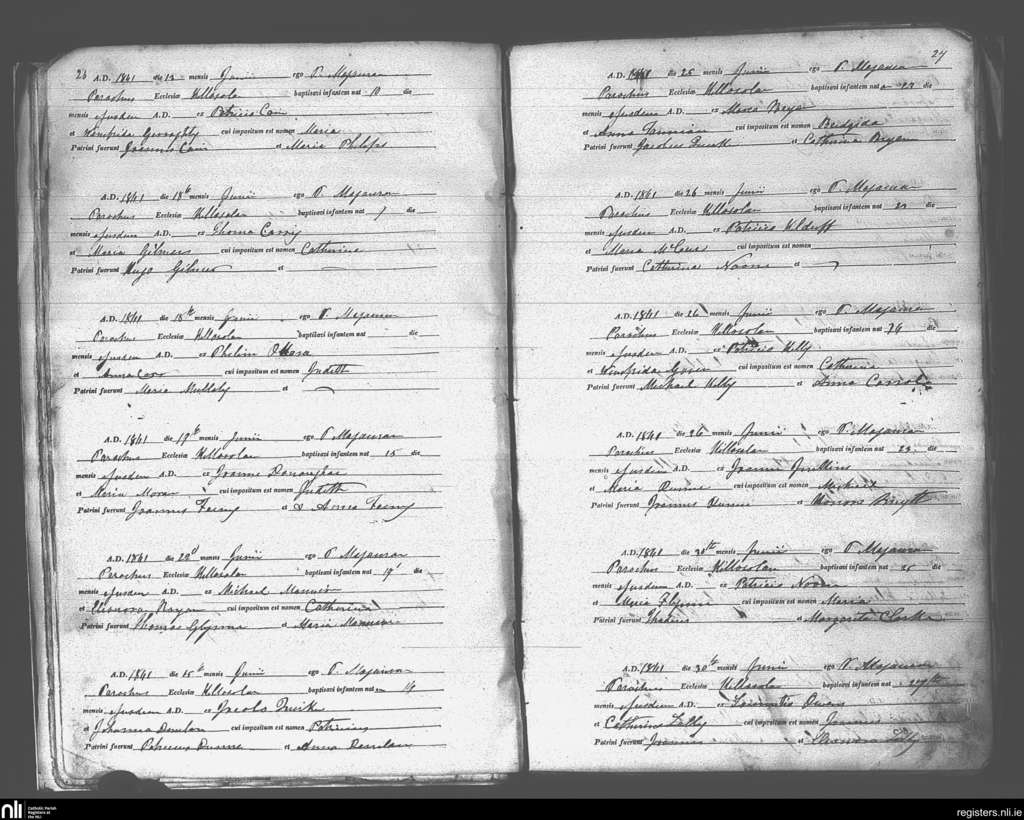 26
A.D. 1841 die 13 mensis Junii ego P. Magauran
Parochus Ecclesiæ Killosolan baptisavi infantem nat 10 die
mensis ejusdem A.D. ex Patricio Cain
et Winifrida Geraghty cui impositum est nomen Maria
Patrini fuerunt Joannes Cain et Maria Philips
A.D. 1841 die 18th mensis Junii ego P. Magauran
Parochus Ecclesiæ Killosolan baptisavi infantem nat die
mensis ejusdem A.D. ex Thoma
et Maria Gilmer cui impositum est nomen Catherina
Patrini fuerunt Hugo Gilmer et
A.D. 1841 die 18th mensis Junii ego P. Magauran
Parochus Ecclesiæ Killosolan baptisavi infantem nat die
mensis ejusdem A.D. ex Phelim OHara
et Anna cui impositum est nomen Judith
Patrini fuerunt Maria Mullaly et
A.D. 1841 die 19th mensis Junii ego P Magauran
Parochus Ecclesiæ Killosolan baptisavi infantem nat 15 die
mensis ejusdem A.D. ex Joanne Donoughoe
et Maria Moran cui impositum est nomen Judith
Patrini fuerunt Joannes Feeny et & Anna Feeny
A.D. 1841 die 22d mensis Junii ego P Magauran
Parochus Ecclesiæ Killosolan baptisavi infantem nat 19 die
mensis ejusdem A.D. ex Michael
et Eleonora cui impositum est nomen Catherina
Patrini fuerunt Thomas Glynn et Maria
A.D. 1841 die 15th mensis Junii ego P. Magauran
Parochus Ecclesiæ Killosolan baptisavi infantem nat 14
mensis ejusdem A.D. ex Jacobo Quirk
et Johanna Donlan cui impositum est nomen Patricius
Patrini fuerunt Patricius Dunne et Anna Donlan
27
A.D. 1841 die 25 mensis Junii ego P. Magauran
Parochus Ecclesiæ Killosolan baptisavi infantem nat 23 die
mensis ejusdem A.D. ex Bryan
et Anna Tannian cui impositum est nomen Bridgida
Patrini fuerunt Jacobus Quirk et Catherina Bryan
A.D. 1841 die 26 mensis Junii ego P. Magauran
Parochus Ecclesiæ Killosolan baptisavi infantem nat die
mensis ejusdem A.D. ex Patricio Kilduff
et Maria cui impositum est nomen
Patrini fuerunt Catherina Noone et
A.D. 1841 die 26 mensis Junii ego P. Magauran
Parochus Ecclesiæ Killosolan baptisavi infantem nat 26 die
mensis ejusdem A.D. ex Patricio Kelly
et Winifrida cui impositum est nomen Catherina
Patrini fuerunt Michael Kelly et Anna
A.D. 1841 die 26 mensis Junii ego P. Magauran
Parochus Ecclesiæ Killosolan baptisavi infantem nat 23 die
mensis ejusdem A.D. ex Joanne
et Maria Dunne cui impositum est nomen Michael
Patrini fuerunt Joannes Dunne et Honora
A.D. 1841 die 30th mensis Junii ego P Magauran
Parochus Ecclesiæ Killosolan baptisavi infantem nat 25 die
mensis ejusdem A.D. ex Patricio Noone
et Maria Flynn cui impositum est nomen Maria
Patrini fuerunt Thadeus et Margarita Clarke
A.D. 1841 die 30th mensis Junii ego P. Magauran
Parochus Ecclesiæ Killosolan baptisavi infantem nat 29th
mensis ejusdem A.D. ex Owens
et Catherina cui impositum est nomen Joannes
Patrini fuerunt Joannes et Eleonora
nli
Catholic Parish
Registers at
the NLI
registers.nli.ie